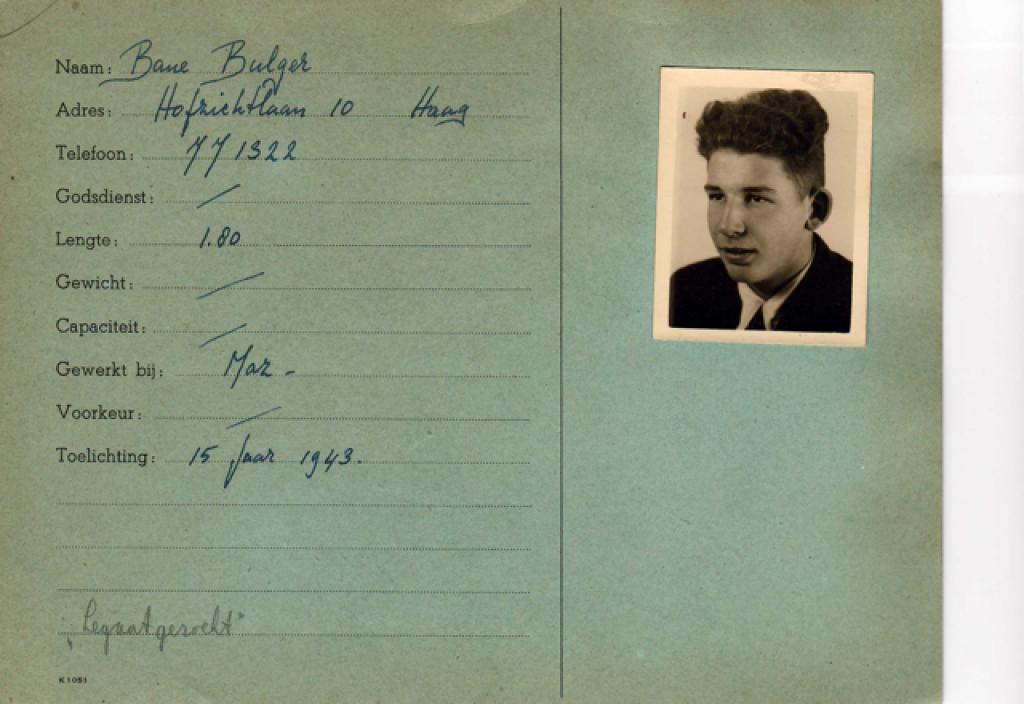 Naam: Bane Bulger
Adres: Hofzichtlaan 10 Haag
Telefoon: 77 1322
Godsdienst: /
Lengte: 1.80
Gewicht: /
Capaciteit: /
Gewerkt bij: Maz -
Voorkeur: /
Toelichting: 15 Jaar 1943.
„Legaat gezocht"
K 1051